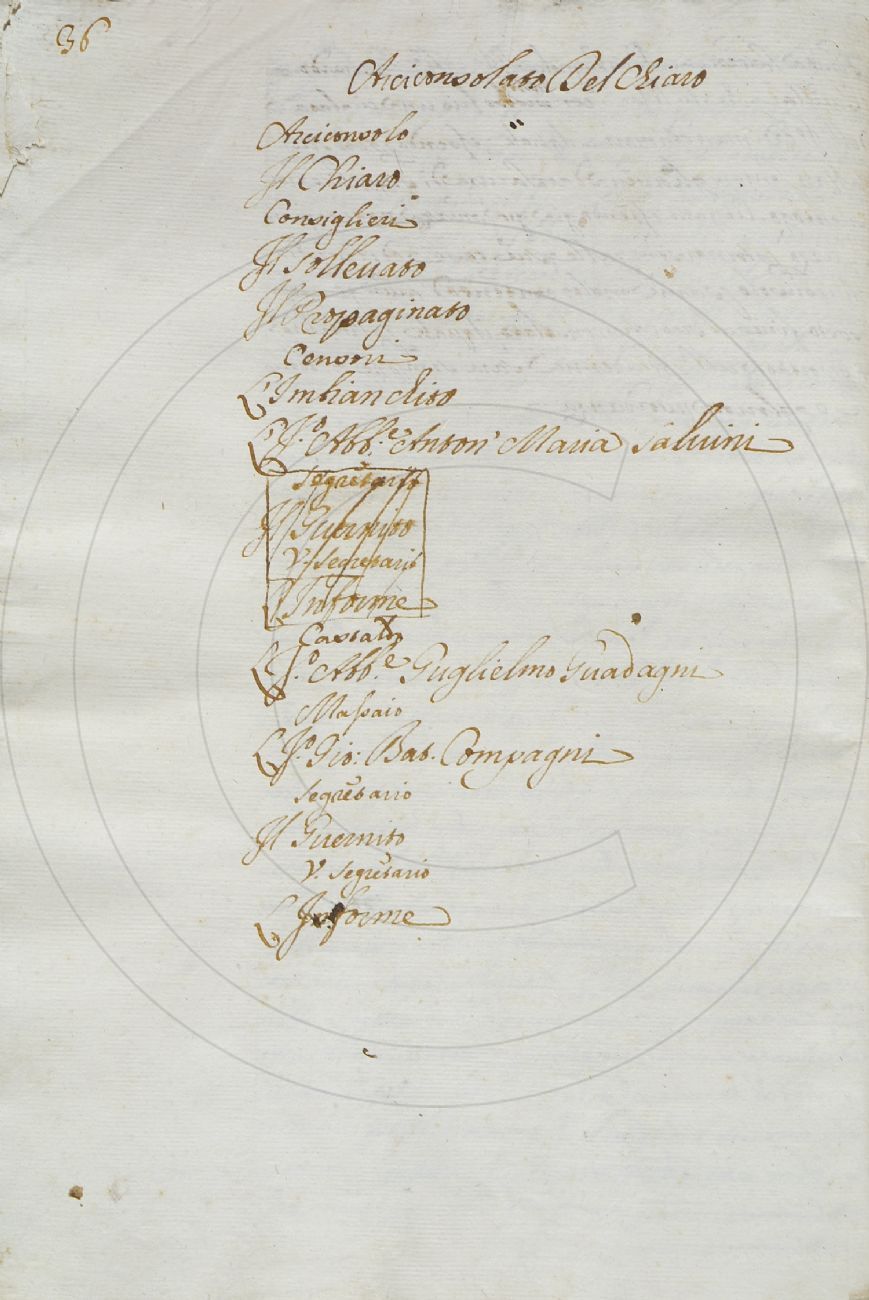 36
Arciconsolato Del Chiaro
Arciconsolo
Il Chiaro
Consiglieri
Il Sollevato
Il Propaginato
Censori
L'Imbianchito
L'J.º Abb.e Anton' Maria Salvini
Segretario
Il Guernito
V. Segretario
L'Informe
Castaldo
L'J.º Abb.e Guglielmo Guadagni
Massaio
L'J.º Gio: Bat. Compagni
Segretario
Il Guernito
V. Segretario
L'Informe